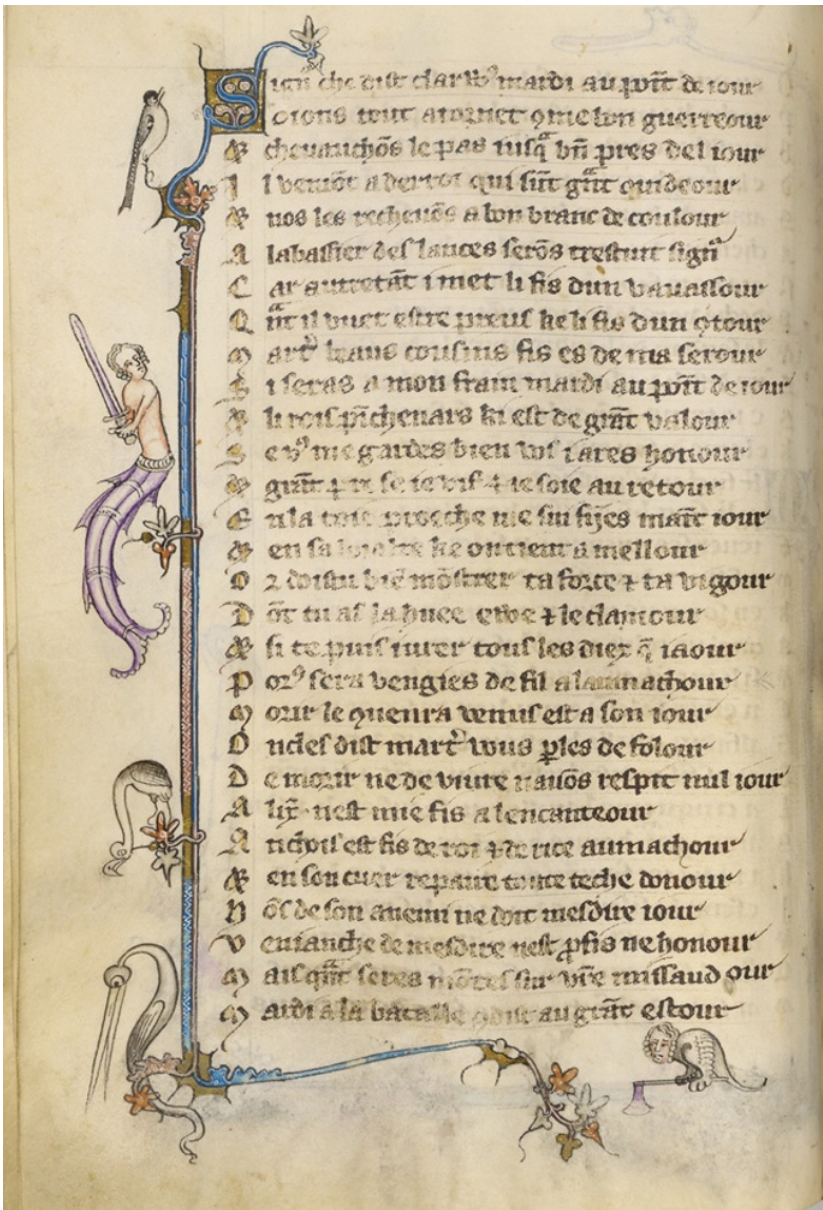 Sign̄ che dist clarꝰ mardi au point de iour
Soions tout atornet ꝯme bon guerreour
& cheuauchōs le pas iusqª bn̄ pres del iour
Il venrōt a derroi qui sūt gªnt cuideour
& nos les recheuōs a bon branc de coulour
A labassier des lances serōs trestuit sign̄
Car autretāt i met li fis dun vauassour
Qªnt il vuet estre preus ke li fis dun ꝯtour
Mart̄ biaus cousins fis es de ma serour
Si seras a mon frain mardi au point de iour
& li rois pīcheuars ki est de grāt valour
Se vꝰ me gardes bien vos i ares honour
& grāt ꝓu se ie vif & ie soie au retour
En la toie proeche me sui fijes maīt iour
& en sa ke a mellour
Or doistu biē mōstrer ta force & ta vigour
Dōt tu as la huee & le clamour
& si te puis iurer tous les diex q̄ iaour
Porꝰ sera vengies de fil a laumachour
Morir le ꝯuenra venus est a son iour
Oncles dist mart̄ vous ꝑles de folour
De morir ne de viure nauōs respit nul iour
Alix̄ nest mie fis a lencanteour
Anchois est fis de roi & de rice aumachour
& en son cuer repaire toute teche donour
Nōs de son anemi ne doit mesdire iour
Venianche de mesdire nest ꝓfis ne honour
Mais qªnt seres mōtes sur vr̄e missaudour
Mardi a la bataille au grāt estour